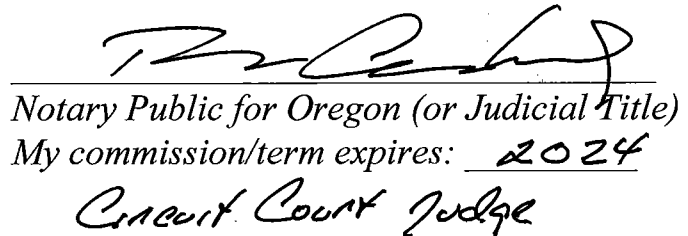 Notary Public for Oregon (or Judicial Title)
My commission/term expires: 2024
Circuit Court Judge